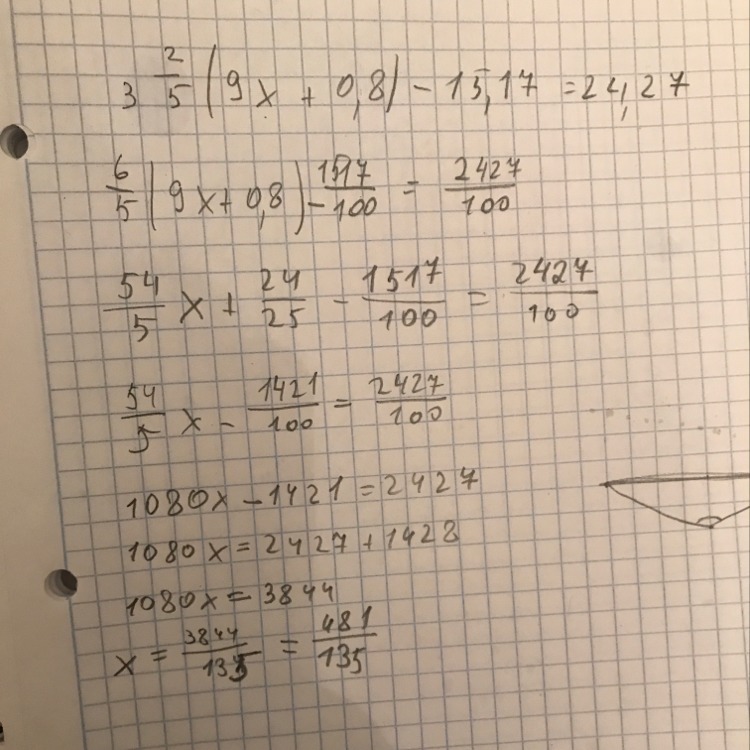 3 2/5 (9x + 0,8) - 15,17 = 24,27
6/5 (9x + 0,8) - 1517/100 = 2427/100
54/5 x + 24/25 - 1517/100 = 2427/100
54/5 x - 1421/100 = 2427/100
1080x - 1421 = 2427
1080x = 2427 + 1428
1080x = 3844
x = 3844/135 = 481/135